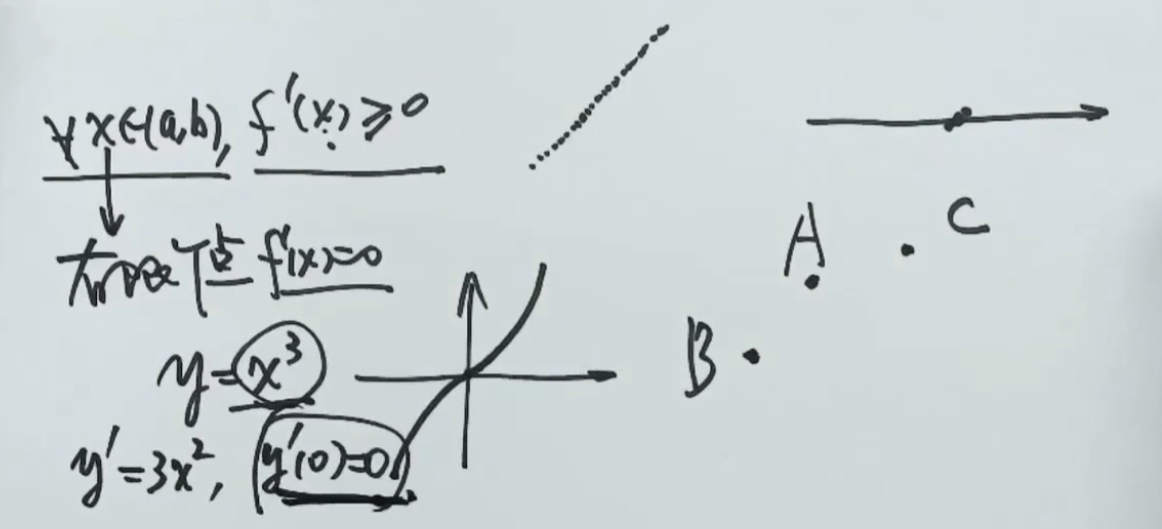 ∀x∈(a,b), f'(x)≥0
有限个点 f'(x)=0
y=x³
y'=3x², y'(0)=0
A
C
B